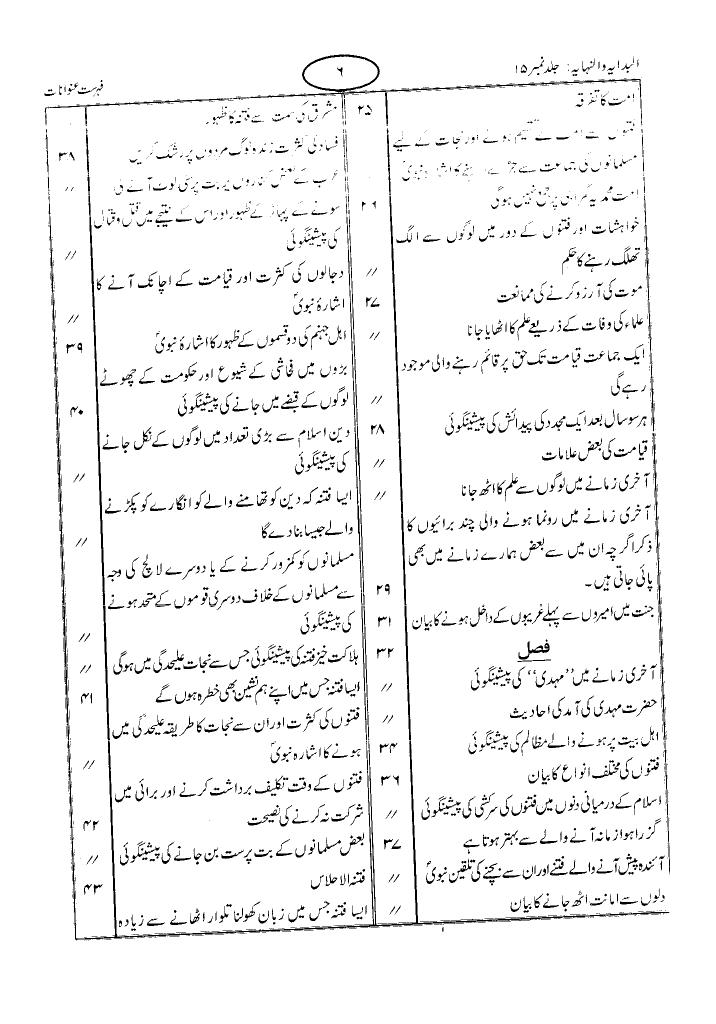 البدایہ والنہایہ: جلد نمبر ۱۵
۶
فہرست عنوانات
امت کا تفرقہ ۲۵
فتنوں سے امت کے تقسیم ہونے اور نجات کے لیے
مسلمانوں کی جماعت سے جڑے رہنے کا اشارہ نبویؐ
امت محمدیہ گمراہی پر جمع نہیں ہوگی ۲۶
خواہشات اور فتنوں کے دور میں لوگوں سے الگ
تھلگ رہنے کا حکم //
موت کی آرزو کرنے کی ممانعت ۲۷
علماء کی وفات کے ذریعے علم کا اٹھایا جانا //
ایک جماعت قیامت تک حق پر قائم رہنے والی موجود
رہے گی //
ہر سو سال بعد ایک مجدد کی پیدائش کی پیشینگوئی ۲۸
قیامت کی بعض علامات //
آخری زمانے میں لوگوں سے علم کا اٹھ جانا //
آخری زمانے میں رونما ہونے والی چند برائیوں کا
ذکر اگرچہ ان میں سے بعض ہمارے زمانے میں بھی
پائی جاتی ہیں۔ ۲۹
جنت میں امیروں سے پہلے غریبوں کے داخل ہونے کا بیان ۳۱
فصل ۳۲
آخری زمانے میں ’’مہدی‘‘ کی پیشینگوئی //
حضرت مہدی کی آمد کی احادیث //
اہل بیت پر ہونے والے مظالم کی پیشینگوئی ۳۴
فتنوں کی مختلف انواع کا بیان ۳۶
اسلام کے درمیانی دنوں میں فتنوں کی سرکشی کی پیشینگوئی //
گزرا ہوا زمانہ آنے والے سے بہتر ہوتا ہے ۳۷
آئندہ پیش آنے والے فتنے اور ان سے بچنے کی تلقین نبویؐ //
دلوں سے امانت اٹھ جانے کا بیان //
مشرق کی سمت سے فتنہ کا ظہور۔
فساد کی کثرت زندہ لوگ مردوں پر رشک کریں ۳۸
عرب کے بعض کناروں پر بت پرستی لوٹ آئے گی //
سونے کے پہاڑ کے ظہور اور اس کے نتیجے میں قتل و قتال
کی پیشینگوئی //
دجالوں کی کثرت اور قیامت کے اچانک آنے کا
اشارۂ نبویؐ //
اہل جہنم کی دو قسموں کے ظہور کا اشارۂ نبویؐ ۳۹
بڑوں میں فحاشی کے شیوع اور حکومت کے چھوٹے
لوگوں کے قبضے میں جانے کی پیشینگوئی ۴۰
دین اسلام سے بڑی تعداد میں لوگوں کے نکل جانے
کی پیشینگوئی //
ایسا فتنہ کہ دین کو تھامنے والے کو انگارے کو پکڑنے
والے جیسا بنا دے گا //
مسلمانوں کو کمزور کرنے کے یا دوسرے لالچ کی وجہ
سے مسلمانوں کے خلاف دوسری قوموں کے متحد ہونے
کی پیشینگوئی //
ہلاکت خیز فتنہ کی پیشینگوئی جس سے نجات علیحدگی میں ہوگی //
ایسا فتنہ جس میں اپنے ہم نشین بھی خطرہ ہوں گے ۴۱
فتنوں کی کثرت اور ان سے نجات کا طریقہ علیحدگی میں
ہونے کا اشارہ نبویؐ //
فتنوں کے وقت تکلیف برداشت کرنے اور برائی میں
شرکت نہ کرنے کی نصیحت ۴۲
بعض مسلمانوں کے بت پرست بن جانے کی پیشینگوئی //
فتنۃ الاحلاس ۴۳
ایسا فتنہ جس میں زبان کھولنا تلوار اٹھانے سے زیادہ